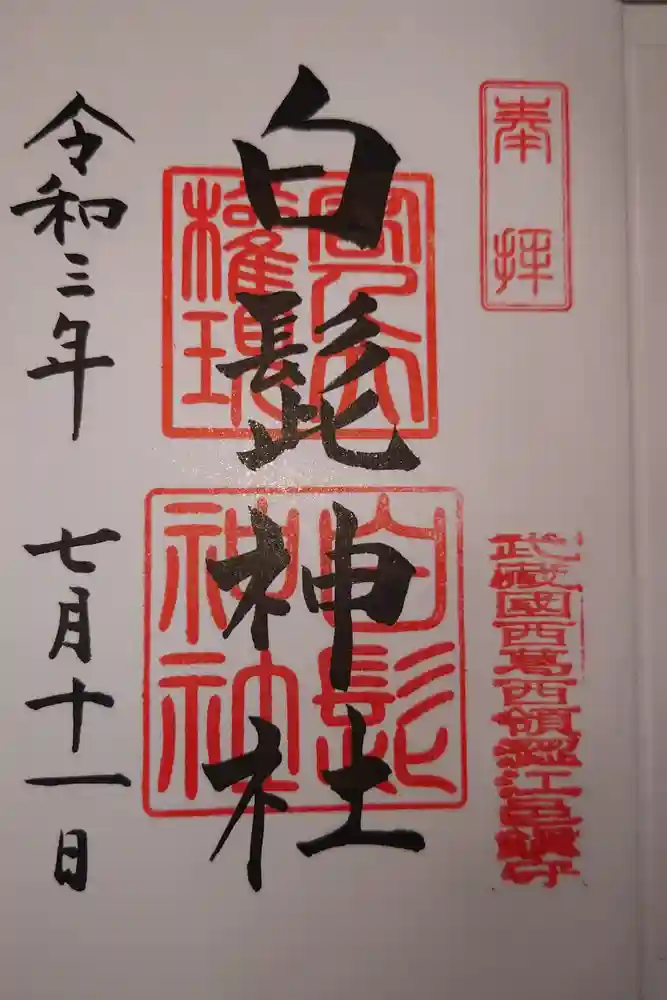 奉拝
武蔵國西葛西領澀江邑鎮守
白髭神社
客人大
權現
白髭
神社
令和三年 七月十一日